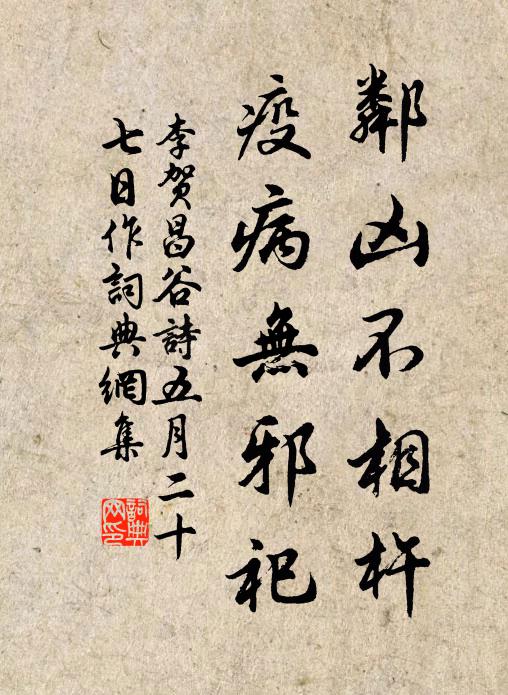 鄰凶不相杵
疫病無邪祀
李賀昌谷詩五月二十
七日作詞典網集
詞典网印